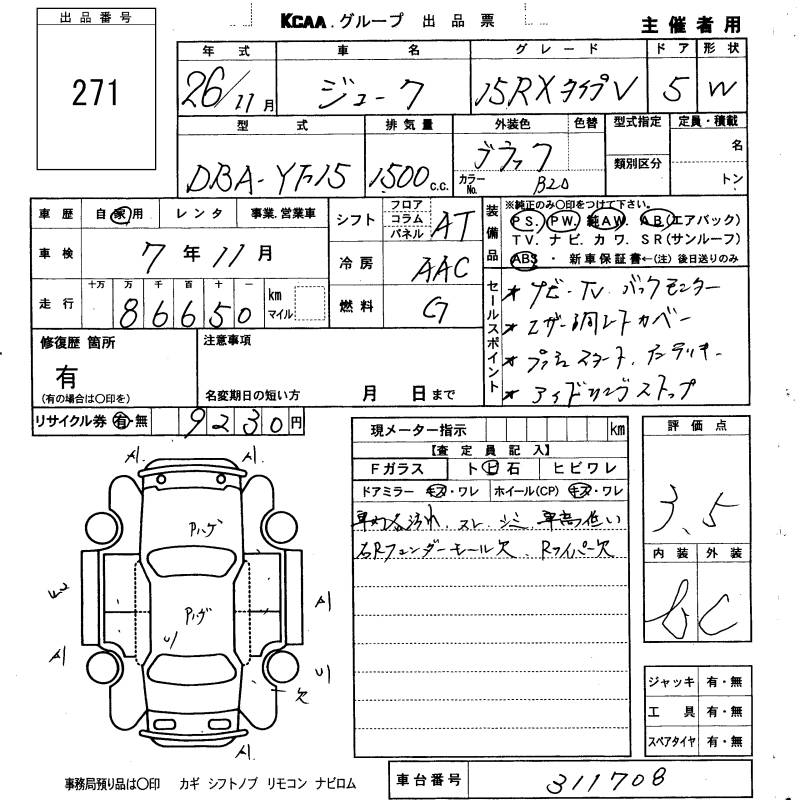 出品番号
271
KCAA.グループ 出品票
主催者用
年式 車名 グレード ドア 形状
26/11月 ジューク 15RXタイプV 5 W
型式 排気量 外装色 色替 型式指定 定員・積載
DBA-YF15 1500c.c. ブラック 名
類別区分
カラーNo. B20 トン
車歴 自家用 レンタ 事業.営業車
車検 7年11月
走行 十万 万 千 百 十 一
86650 km マイル
シフト フロア コラム パネル AT
冷房 AAC
燃料 G
装備品 ※純正のみ〇印をつけて下さい。
PS. PW. 純AW. AB.(エアバック)
TV. ナビ. カワ. SR(サンルーフ)
ABS ・ 新車保証書←(注) 後日送りのみ
セールスポイント
* ナビ・TV バックモニター
* レザー調シートカバー
* プッシュスタート.
* アイドリングストップ
修復歴 箇所
有
(有の場合は〇印を)
注意事項
名変期日の短い方 月 日まで
リサイクル券 有・無 9230円
現メーター指示 km
【査定員記入】
Fガラス ト ビ 石 ヒビワレ
ドアミラー キズ・ワレ ホイール(CP) キズ・ワレ
車内 汚れ スレ シミ 車高低い
右Rフェンダーモール欠 Rワイパー欠
評価点
3.5
内装 外装
b C
ジャッキ 有・無
工具 有・無
スペアタイヤ 有・無
A1. A1.
Pハゲ
Pハゲ
U1
A1
A1
U1
欠
A1
事務局預り品は〇印 カギ シフトノブ リモコン ナビロム
車台番号 311708